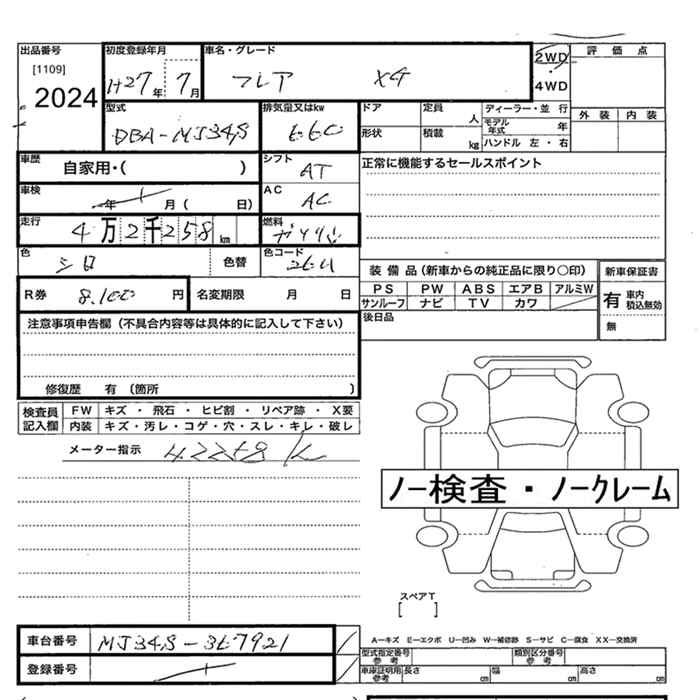 出品番号 初度登録年月 車名・グレード 2WD 評価点
[1109] H27年 7月 フレア XG 4WD
2024 型式 排気量又はkw ドア 定員 人 ディーラー・並 行 外装 内装
DBA-MJ34S 660 形状 積載 kg モデル年式 年
ハンドル 左・右
車歴 自家用・( ) シフト AT 正常に機能するセールスポイント
車検 年 月 ( 日) AC AC
走行 4万2千258km 燃料 ガソリン
色 シロ 色替 色コード 26U 装備品(新車からの純正品に限り○印) 新車保証書
R券 8,100円 名変期限 月 日 PS PW ABS エアB アルミW 有 車内積込無効
サンルーフ ナビ TV カワ 無
注意事項申告欄(不具合内容等は具体的に記入して下さい) 後日品
修復歴 有 (箇所 )
検査員記入欄 FW キズ ・ 飛石 ・ ヒビ割 ・ リペア跡 ・ X要
内装 キズ・汚レ・コゲ・穴・スレ・キレ・破レ
メーター指示 42258K
ノー検査・ノークレーム
スペアT
[ ]
車台番号 MJ34S-367921 A−キズ E−エクボ U−凹み W−補修跡 S−サビ C−腐食 XX−交換済
型式指定番号 参考 類別区分番号 参考
登録番号 車庫証明用 参考 長さ cm 幅 cm 高さ cm